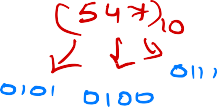 (547)10
0101 0100 0111